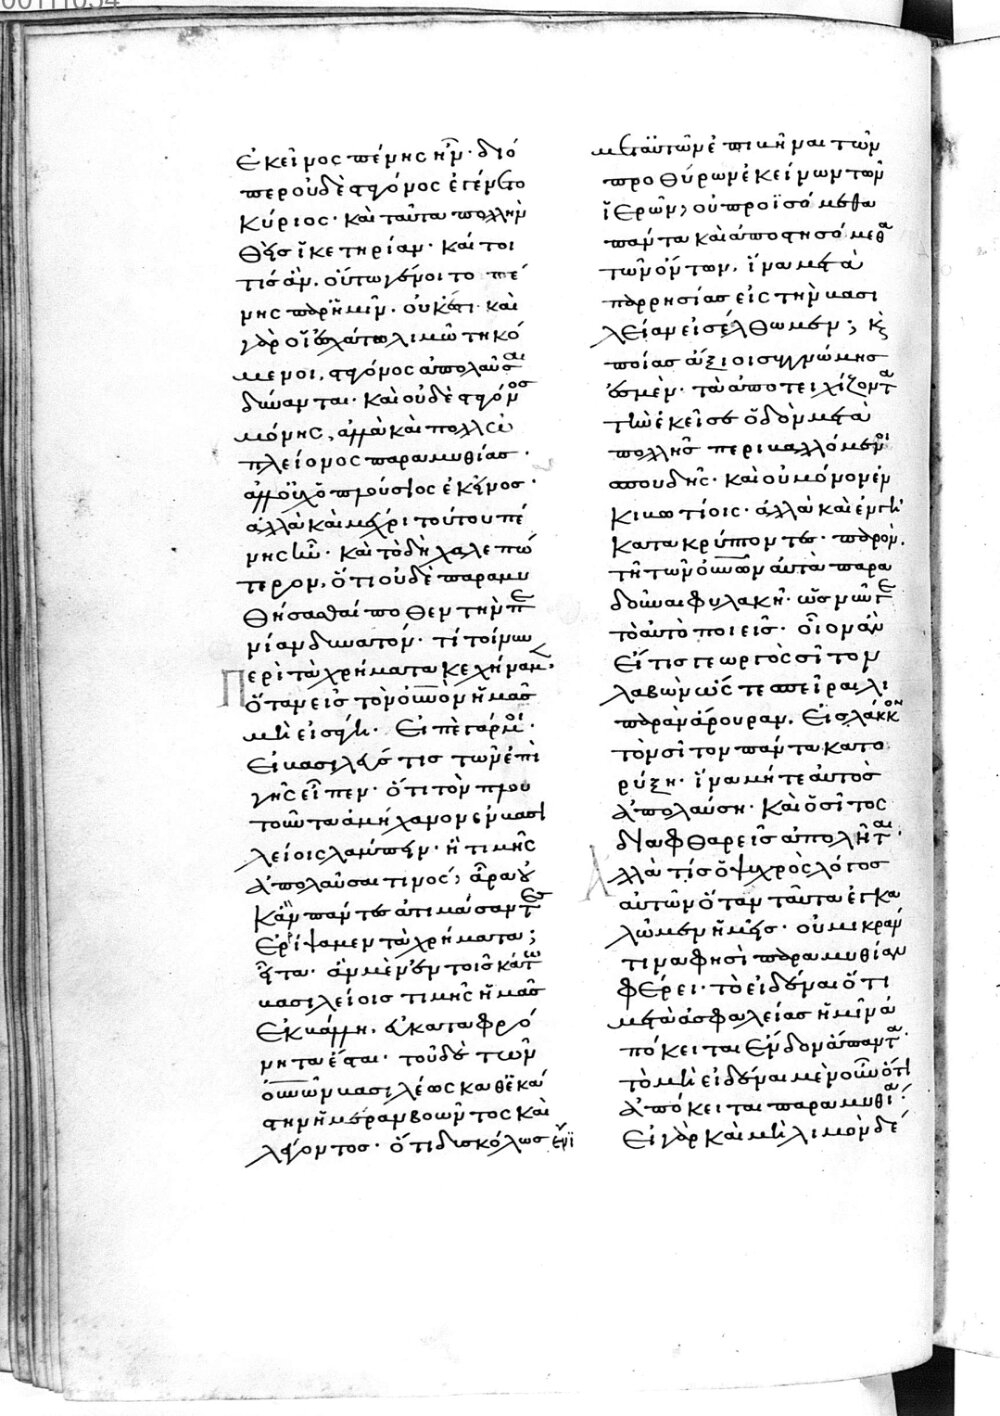 ἐκεῖνος πένης ἦν· διό
περ οὐδὲ σταγόνος ἐγένετο
κύριος· καὶ ταῦτα πολλὴν
θεὶς ἱκετηρίαν· καί τοι
τίς ἂν, οὕτω γένοιτο πέ
νης παρ' ἡμῖν. οὐκ ἔστι· καὶ
γὰρ οἱ ἐσχάτω λιμῷ τηκό
μενοι, σταγόνος ἀπολαῦσαι
δύνανται· καὶ οὐδὲ σταγόνος
μόνης, ἀλλὰ καὶ πολλῷ
πλείονος παραμυθίας·
ἀλλ' οὐχ ὁ πλούσιος ἐκεῖνος·
ἀλλὰ καὶ μέχρι τούτου πέ
νης ἦν· καὶ τὸ δὴ χαλεπώ
τερον, ὅτι οὐδὲ παραμυ
θήσασθαί ποθεν τὴν πε
νίαν δυνατόν· τί τοίνυν
περὶ τὰ χρήματα κεχήναμεν·
ὅταν εἰς τὸν οὐνὸν ἡμᾶς
μὴ εἰσάγη· εἰπὲ γάρ μοι·
εἰ βασιλεύς τις τῶν ἐπὶ
γῆς εἶπεν· ὅτι τὸν πλου
τοῦντα ἀμήχανον ἐν βασι
λείοις λάμπειν· ἢ τιμῆς
ἀπολαῦσαί τινος; ἆρα οὐ
κἂν πάντες ἀτιμάσαντες
ἐρίψαμεν τὰ χρήματα;
εἶτα· ἂν μὲν ἐν τοῖς κάτω
βασιλείοις τιμῆς ἡμᾶς
ἐκβάλλη, εὐκαταφρό
νητα ἔσται· τοῦ δὲ τῶν
οὐνῶν βασιλέως καθ' ἑκά
στην ἡμέραν βοῶντος καὶ
λέγοντος· ὅτι δυσκόλως ἔνι
μετ' αὐτῶν ἐπιβῆναι τῶν
προθύρων ἐκείνων τῶν
ἱερῶν, οὐ προϊσόμεθα
πάντα καὶ ἀποστησόμεθα
τῶν ὄντων, ἵνα μετὰ
παρρησίας εἰς τὴν βασι
λείαν εἰσέλθωμεν; κὶ
ποίας ἄξιοι συγγνώμης
ἐσμὲν· τὰ ἀποτειχίζοντα
τὴν ἐκεῖσε ὁδὸν μετὰ
πολλῆς περιβαλλόμενοι
σπουδῆς· καὶ οὐ μόνον ἐν
κιβωτίοις· ἀλλὰ καὶ ἐν γῇ
κατακρύπτοντες· παρὸν,
τῇ τῶν οὐνῶν αὐτὰ παρα
δοῦναι φυλακῇ· ὡς νῦν γε
τὸ αὐτὸ ποιεῖς· οἷον ἂν
εἴ τις γεωργὸς σῖτον
λαβὼν ὥστε σπεῖραι λι
παρὰν ἄρουραν, εἰς λάκκον
τὸν σῖτον πάντα κατο
ρύξη· ἵνα μήτε αὐτὸς
ἀπολαύση· καὶ ὁ σῖτος
διαφθαρεὶς ἀπολῆται·
Ἀλλὰ τίς ὁ ψυχρὸς λόγος
αὐτῶν ὅταν ταῦτα ἐγκα
λῶμεν ἡμεῖς· οὐ μικράν
τινα φησὶ παραμυθίαν
φέρει· τὸ εἰδέναι ὅτι
μετὰ ἀσφαλείας ἡμῖν ἀ
πόκειται ἔνδον ἅπαντα·
τὸ μὴ εἰδέναι μὲν οὖν ὅτι
ἀπόκειται παραμυθία·
Εἰ γὰρ καὶ μὴ λιμὸν δέ